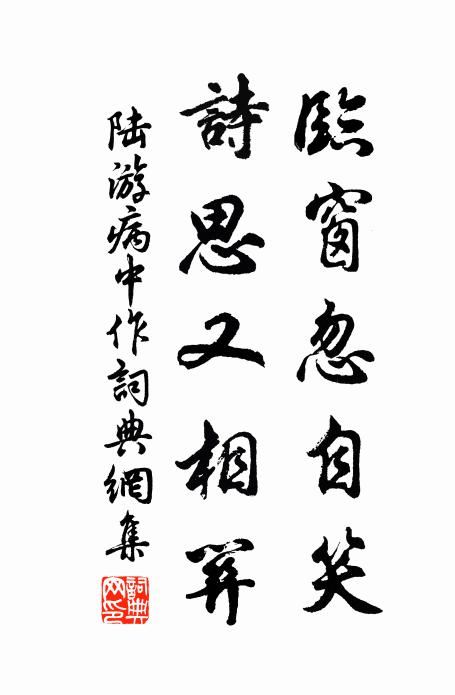 臨窗忽自笑
詩思又相關
陸游病中作詞典網集
詞典網印